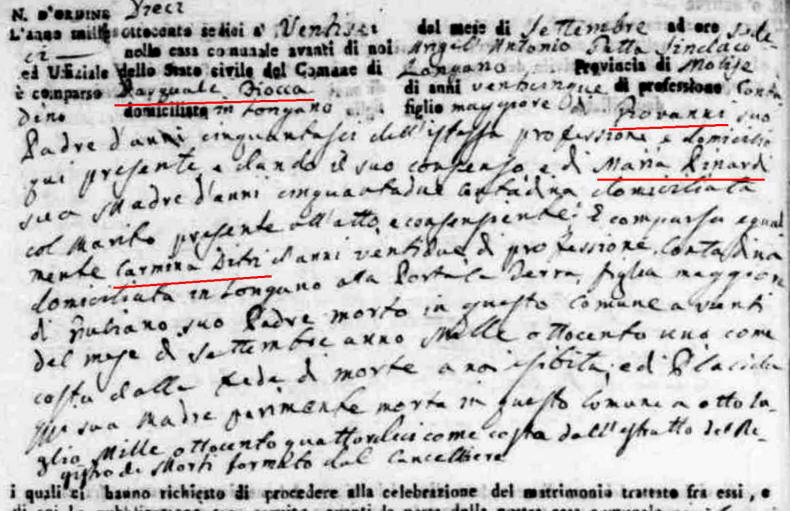 N. D'ORDINE Dieci
L'anno mille ottocento sedici a' Ventisei del mese di Settembre ad ore sedeci
nella casa comunale avanti di noi Angel'Antonio Sindaco
ed Ufiziale dello Stato civile del Comune di Longano Provincia di Molise
è comparso Pasquale Ciocca di anni venticinque di professione Conta
dino domiciliato in Longano figlio maggiore di Giovanni suo
Padre d'anni cinquantasei dell'istessa professione e domicilio
qui presente, e dando il suo consenso, e di Maria
sua Madre d'anni cinquantadue Contadina domiciliata
col Marito presente all'atto, e consenziente: È comparsa egual
mente Carmina Ditri d'anni ventidue di professione Contadina
domiciliata in Longano alla Porta la Terra, figlia maggiore
di Giuliano suo Padre morto in questo comune a venti
del mese di Settembre anno Mille ottocento uno come
costa dalla fede di morte a noi esibita; ed Placida
sua Madre parimente morta in questo Comune a otto Lu
glio Mille ottocento quattordici come costa dall'estratto del Re
gistro de' morti formato dal Cancelliere
i quali ci hanno richiesto di procedere alla celebrazione del matrimonio trattato fra essi, e